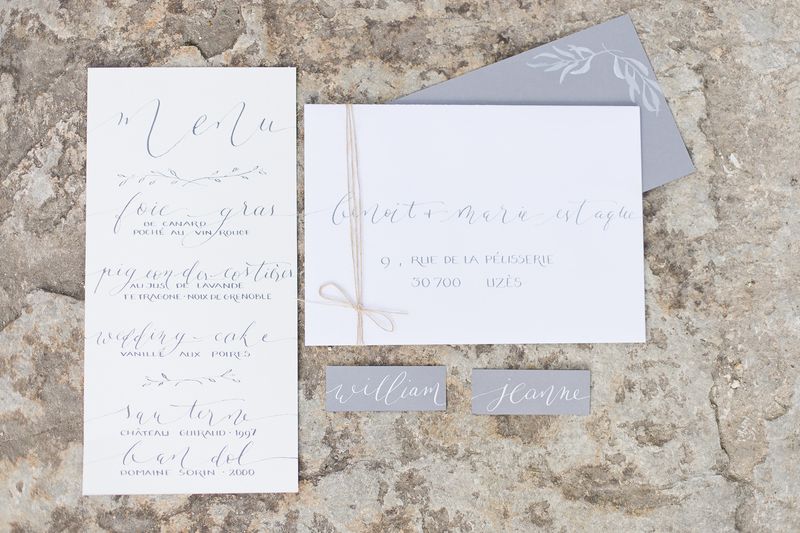 menu
foie gras
DE CANARD
POCHÉ AU VIN ROUGE
pigeon des costières
AU JUS DE LAVANDE
TETRAGONE · NOIX DE GRENOBLE
wedding cake
VANILLÉ AUX POIRES
sauterne
CHÂTEAU GUIRAUD · 1997
bandol
DOMAINE SORIN · 2000
benoit + marie estague
9, RUE DE LA PÉLISSERIE
30700 UZÈS
william
jeanne